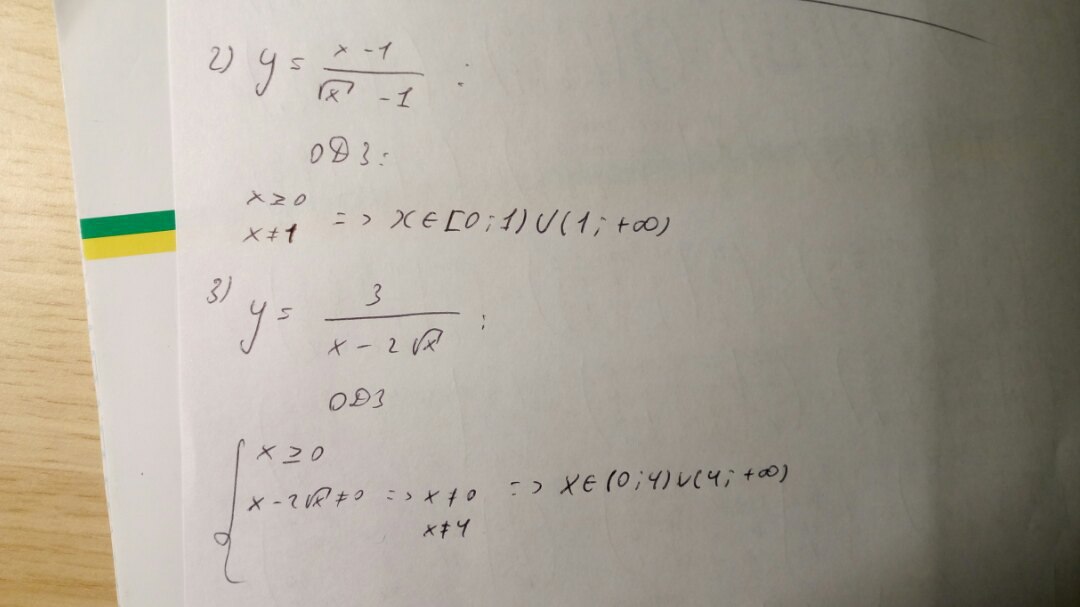 2) y = (x - 1)/(√x - 1) :
ОДЗ:
x ≥ 0
x ≠ 1 => x ∈ [0; 1) ∪ (1; +∞)
3) y = 3/(x - 2√x) ;
ОДЗ
{ x ≥ 0
x - 2√x ≠ 0 => x ≠ 0 => x ∈ (0; 4) ∪ (4; +∞)
x ≠ 4